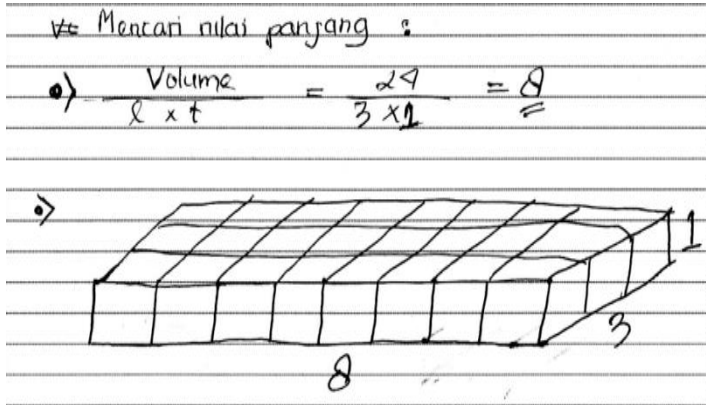 Mencari nilai panjang :
Volume / l x t = 24 / 3 x 1 = 8
1
3
8